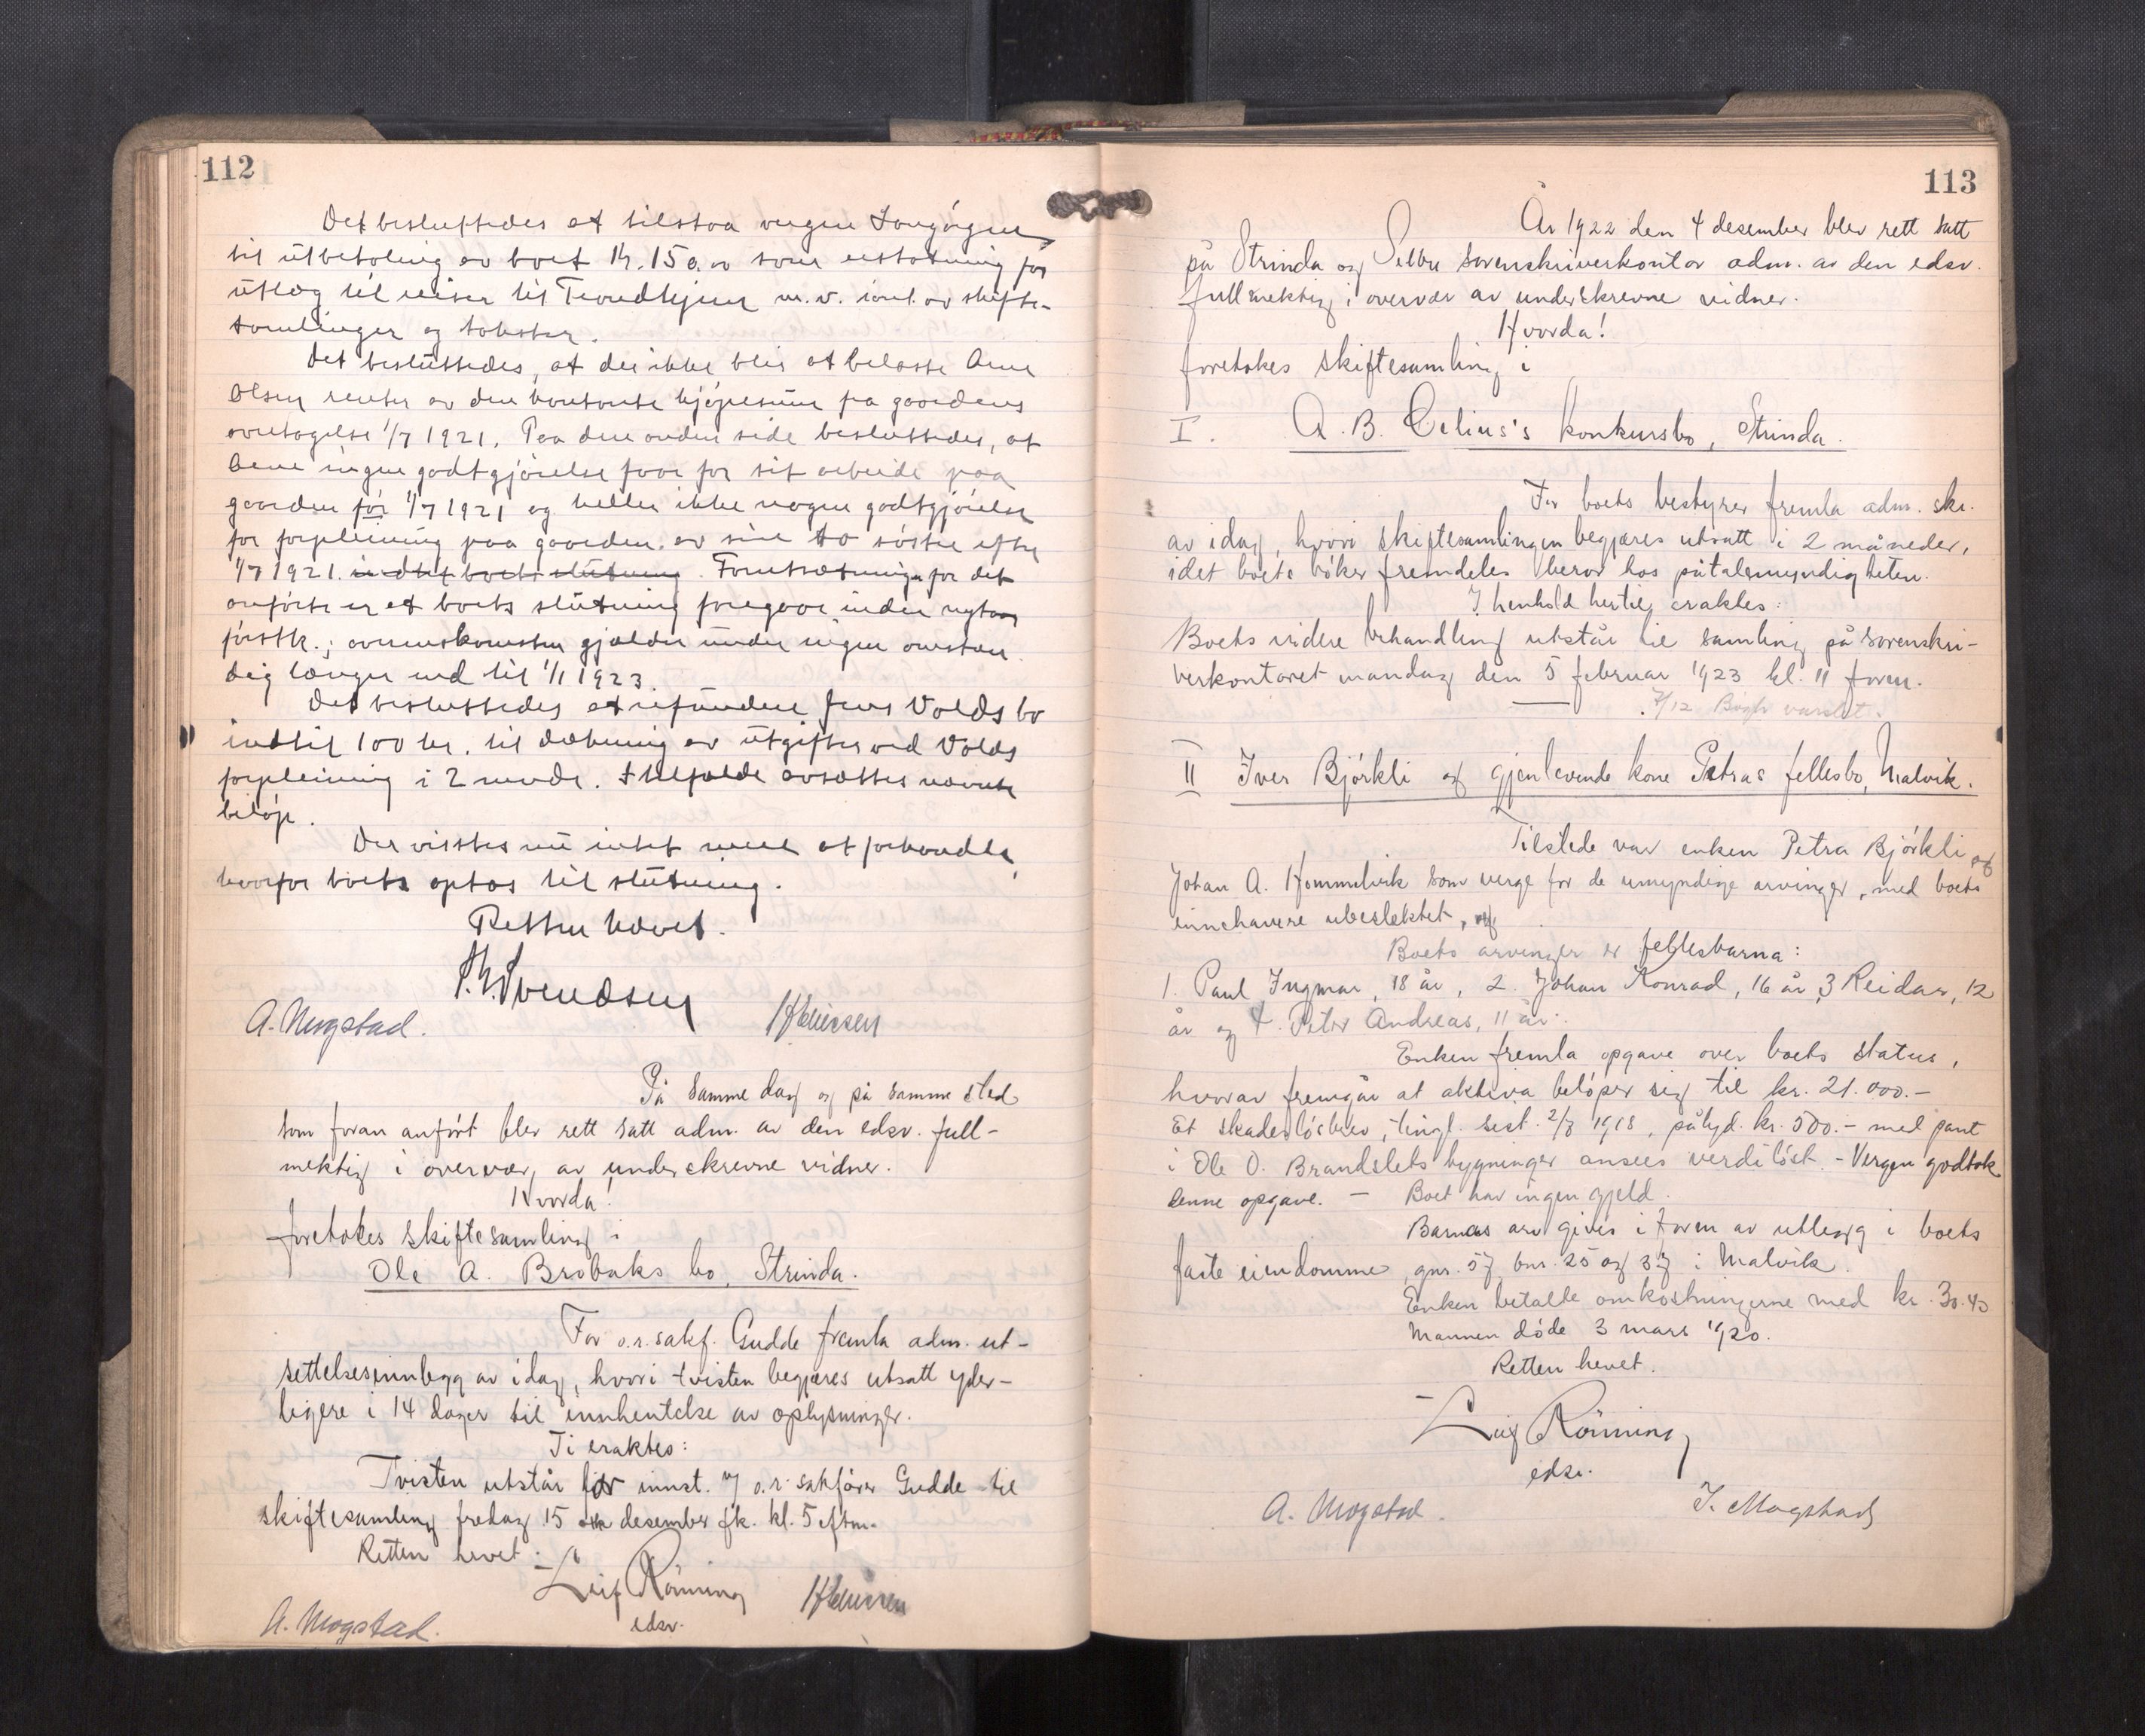 112
Det besluttedes at tilstaa vergen Langörgen
til utbetaling av boet Kr. 150.00 som erstatning for
utlæg til reiser til Trondhjem m.v. i anl. av skifte-
samlinger og takster.
Det besluttedes, at der ikke blir at belaste Arne
Olsen renter av den kontante kjöpesum fra gaardens
overtagelse 1/7 1921. Paa den anden side besluttedes, at
Arne ingen godtgjörelse faar for sit arbeide paa
gaarden för 1/7 1921 og heller ikke nogen godtgjörelse
for forpleining paa gaarden av sine to söstre efter
1/7 1921 indtil boets slutning. Forutsætningen for det
anförte er at boets slutning foregaar inden nytaar
förstk.; overenskomsten gjælder under ingen omstæn
dig længer end til 1/1 1923.
Det besluttedes at refundere Jens Volds bo
indtil 100 kr. til dækning av utgifter ved Volds
forpleining i 2 mndr. I tilfælde avsættes nævnte
belöp.
Der visstes nu intet mere at forhandle,
hvorfor boets optas til slutning.
Retten hævet.
Svendsen
A. Mogstad.
På samme dag og på samme sted
som foran anfört blev rett satt adm. av den edsv. full-
mektig i overvær av underskrevne vidner.
Hvorda!
foretokes skiftesamling i
Ole A. Brobaks bo, Strinda.
For o.r.sakf. Gudde fremla adm. ut-
settelsesinnlegg av idag, hvori tvisten begjæres utsatt yder-
ligere i 14 dager til innhentelse av oplysninger.
Ti eraktes:
Tvisten utstår for innst. o.r. sakförer Gudde til
skiftesamling fredag 15 desember fk. kl. 5 eftm.
Retten hevet.
Leif Rönning
edsv.
A. Mogstad.
113
År 1922 den 4 desember blev rett satt
på Strinda og Selbu sorenskriverkontor adm. av den edsv.
fullmektig i overvær av underskrevne vidner.
Hvorda!
foretokes skiftesamling i
I. A. B. Celius's konkursbo, Strinda.
For boets bestyrer fremla adm. skr.
av idag, hvori skiftesamlingen begjæres utsatt i 2 måneder,
idet boets böker fremdeles beror hos påtalemyndigheten.
I henhold hertil eraktes:
Boets videre behandling utstår til samling på sorenskri-
verkontoret mandag den 5 februar 1923 kl. 11 form.
7/12 varslet.
II Iver Björkli og gjenlevende kone Petras fellesbo, Malvik.
Tilstede var enken Petra Björkli og
Johan A. Hommelvik som verge for de umyndige arvinger, med boets
innehavere ubeslektet, og
Boets arvinger er fellesbarna:
1. Paul Ingmar, 18 år, 2. Johan Konrad, 16 år, 3 Reidar, 12
år og 4. Peter Andreas, 11 år.
Enken fremla opgave over boets status,
hvorav fremgår at aktiva belöper sig til kr. 21.000.-
Et skadeslösbrev, tingl. sest. 2/7 1918, pålyd. kr. 500.- med pant
i Ole O. Brandslets bygninger ansees verdilöst. - Vergen godtok
denne opgave. - Boet har ingen gjeld.
Barnas arv gives i form av utlegg i boets
faste eiendomme, gnr. 57 bnr. 25 og 37 i Malvik.
Enken betalte omkostningerne med kr. 30.40
Mannen döde 3 mars 1920.
Retten hevet.
Leif Rönning
edsv.
A. Mogstad.
J. Mogstad